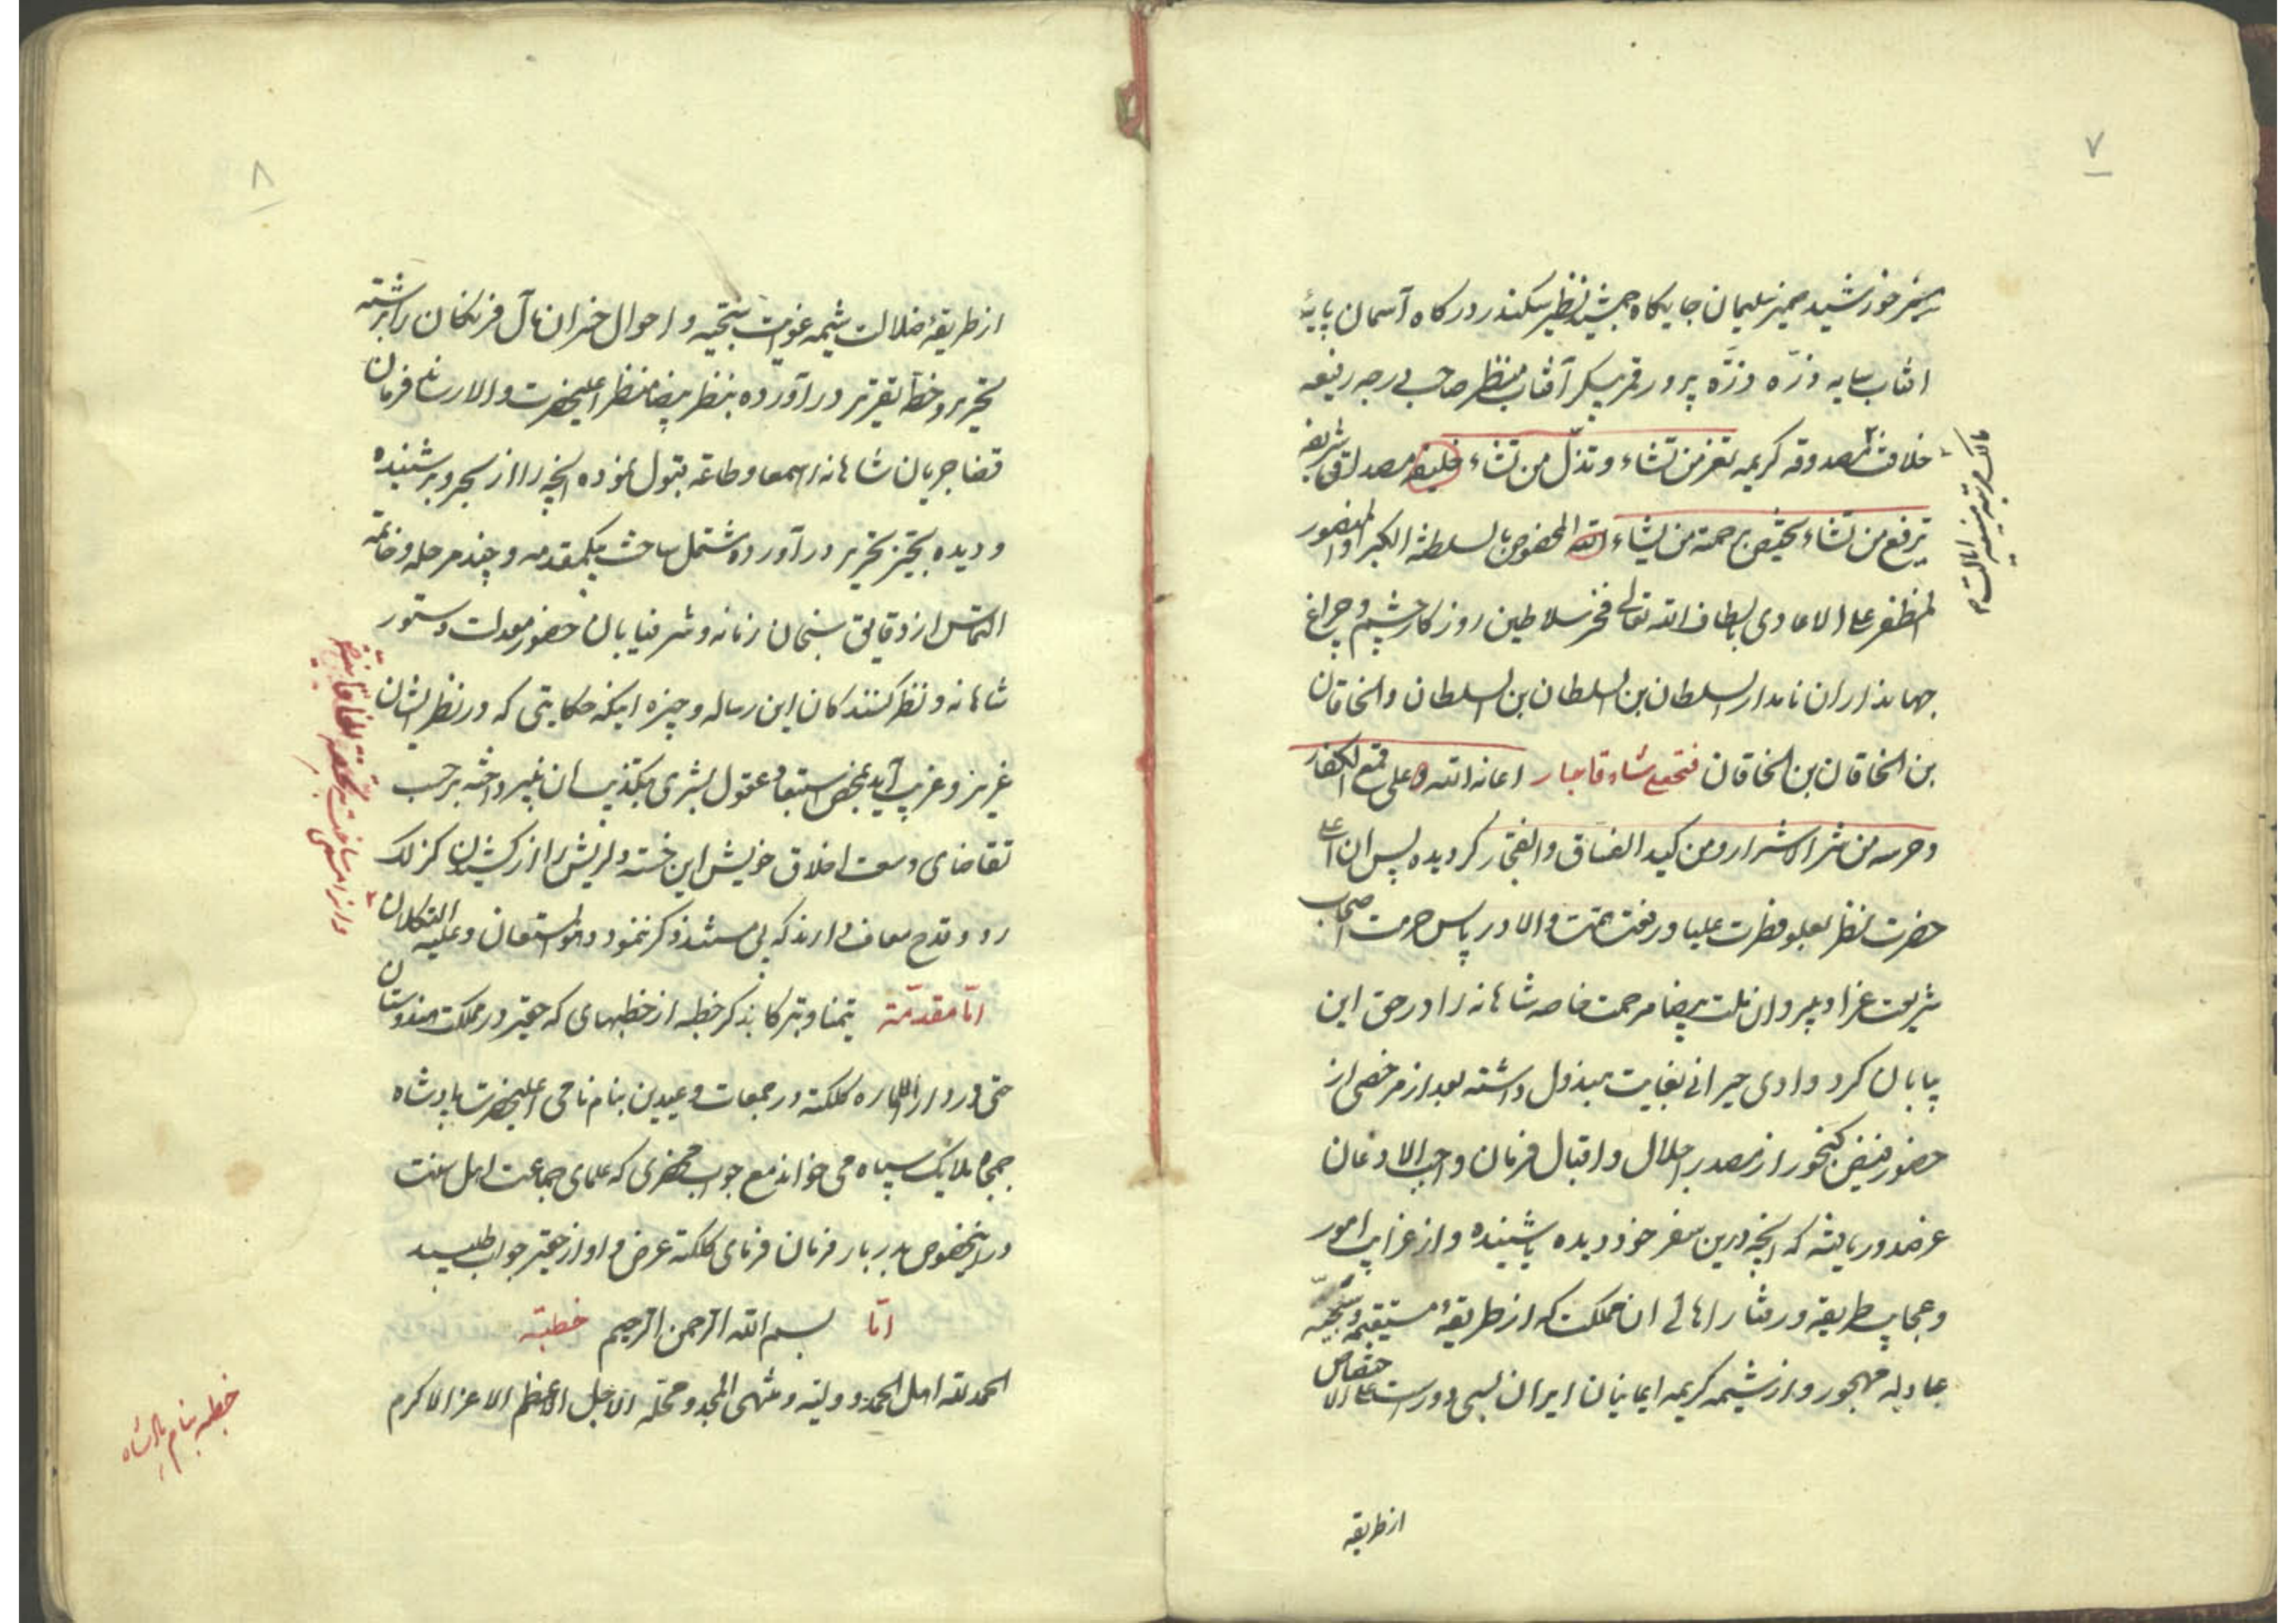 ۷
سریر خورشید ضمیر سلیمان جایگاه جمشید نظیر سکندر درگاه آسمان پایهٔ
افتاب سایه ذرّه ذرّه پرور قمر پیکر آفتاب منظر صاحب درجه رفیعه
خلافت مصدوقه کریمه تعز من تشاء و تذلّ من تشاء خلیفه مصداق شریفه
ترفع من تشاء یختص برحمته من یشاء الله المخصوص بالسلطنة الکبرا و المنصور
المظفر علی الاعادی بالطاف الله تعالی فخر سلاطین روزکار چشم و چراغ
جهانداران نامدار السلطان بن السلطان بن السلطان والخاقان
بن الخاقان بن الخاقان فتحعلی شاه قاجار اعانه الله علی قمع الکفار
و حرسه من شر الاشرار و من کید الفساق والفجار کردیده پس ان اعلی
حضرت نظر بعلو فطرت علیا و رفعت همت والا در پاس حرمت اصحاب
شریعت غرا و پیروان ملت بیضا مرحمت خاصه شاهانه را در حق این
بیابان کرد وادی حیرانی بغایت مبذول داشته بعد از مرخصی از
حضور فیض کنجور از مصدر اجلال و اقبال فرمان واجب الاذعان
عز صدور یافته که انچه درین سفر خود دیده یا شنیده و از غرایب امور
و عجایب طریقه و رفتار اهالی ان مملکت که از طریقهٔ مستقیمه و سجیّه
عادله مهجور و از شیمه کریمه ایمانیان ایران بسی دور است علی الاختصاص
مالک مرتبه منیعه ایالت
از طریقه
۸
از طریقهٔ ضلالت شیمه غوایت سجیه و احوال خسران مآل فرنکان را برشته
تحریر و خطهٔ تقریر در آورده بنظر بیضا منظر اعلیحضرت والا رساند فرمان
قضا جریان شاهانه را سمعا و طاعة قبول نموده انچه را از بحر و بر شنیده
و دیده بحیّز تحریر در آورده مشتمل ساخت بیکمقدمه و چند مرحله و خاتمه
التماس از دقایق سنجان زمانه و شرفیابان حضور معدلت دستور
شاهانه و نظر کنندکان این رساله وجیزه اینکه حکایتی که در نظر ایشان
غریز و غریب آید بمحض استبعاد عقول بشری بتکذیب ان نپرداخته بر حسب
تقاضای وسعت اخلاق خویش این خسته دلریش را از کشیدن کزلک
رد و قدح معاف دارند که بی مستند ذکر ننمود و هو المستعان و علیه التکلان
امّا مقدمّه تیمنا و تبرکا بذکر خطبه از خطبهای که حقیر در مملکت هندوستان
حتی در دارالاماره کلکته در جمعات و عیدین بنام نامی اعلیحضرت پادشاه
جمجاه ملایک سپاه می خواند مع جواب محضری که علمای جماعت اهل سنت
در اینخصوص بدربار فرمان فرمای کلکته عرض و او از حقیر جواب طلبید
امّا بسم الله الرحمن الرحیم خطبة
الحمد لله اهل الحمد و ولیه و منتهی المجد و محله الاجل الاعظم الاعز الاکرم
و انرا مسمی ساخت به تحفة الخاقانیه
خطبه بنام پادشاه